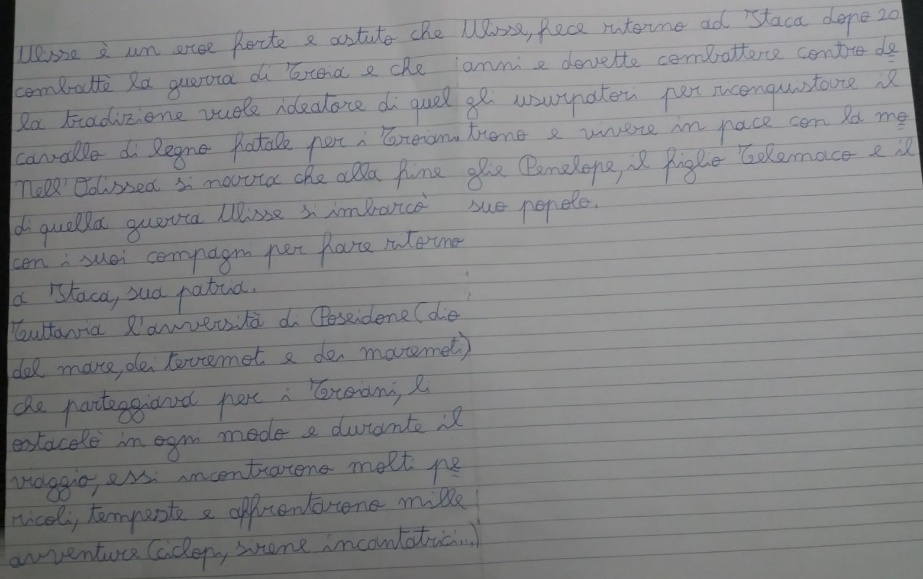 Ulisse è un eroe forte e astuto che
combatté la guerra di Troia e che
la tradizione vuole ideatore di quel
cavallo di legno fatale per i Troiani.
Nell'Odissea si narra che alla fine
di quella guerra Ulisse si imbarcò
con i suoi compagni per fare ritorno
a Itaca, sua patria.
Tuttavia l'avversità di Poseidone (dio
del mare, dei terremoti e dei maremoti)
che parteggiava per i Troiani, li
ostacolò in ogni modo e durante il
viaggio, essi incontrarono molti pe
ricoli, tempeste e affrontarono mille
avventure (ciclopi, sirene incantatrici...)
Ulisse, fece ritorno ad Itaca dopo 20
anni e dovette combattere contro de
gli usurpatori per riconquistare il
trono e vivere in pace con la mo
glie Penelope, il figlio Telemaco e il
suo popolo.